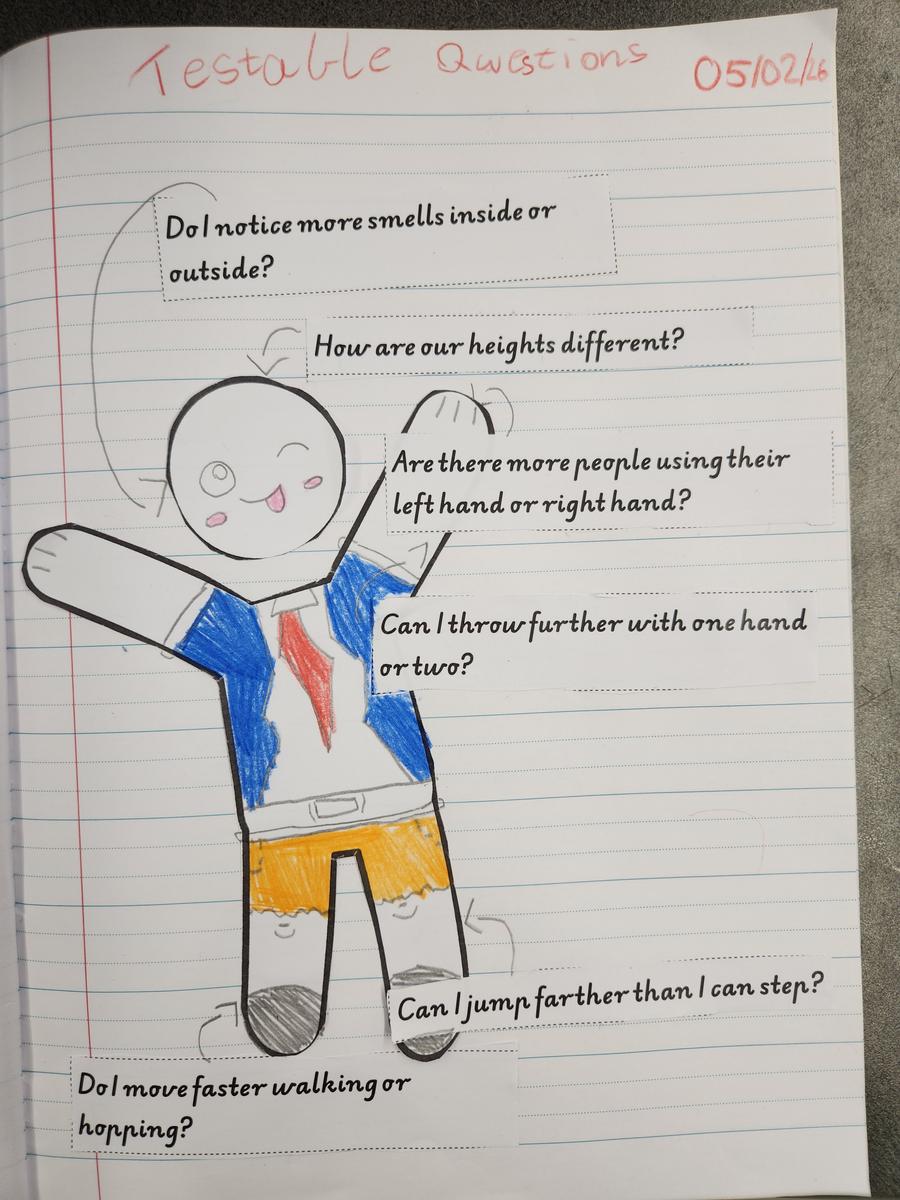 Testable Questions 05/02/26
Do I notice more smells inside or
outside?
How are our heights different?
Are there more people using their
left hand or right hand?
Can I throw further with one hand
or two?
Can I jump farther than I can step?
Do I move faster walking or
hopping?